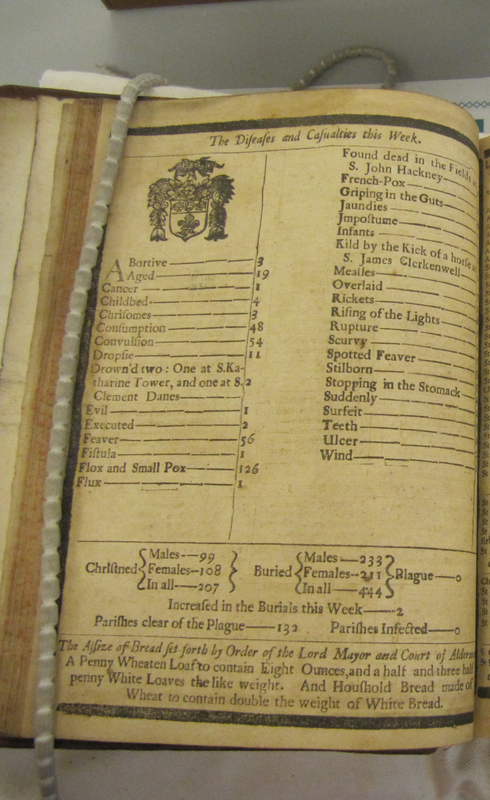 The Diſeaſes and Caſualties this Week.
ABortive 3
Aged 19
Cancer 1
Childbed 4
Chriſomes 3
Conſumption 48
Convulſion 54
Dropſie 11
Drown'd two: One at S.Ka-
tharine Tower, and one at S. 2
Clement Danes
Evil 1
Executed 2
Feaver 56
Fiſtula 1
Flox and Small Pox 126
Flux 1
Found dead in the Fields
S. John Hackney
French-Pox
Griping in the Guts
Jaundies
Jmpoſtume
Infants
Kild by the Kick of a horſe
S. James Clerkenwell
Meaſles
Overlaid
Rickets
Riſing of the Lights
Rupture
Scurvy
Spotted Feaver
Stilborn
Stopping in the Stomack
Suddenly
Surfeit
Teeth
Ulcer
Wind
Males 99
Chriſtned Females 108
In all 207
Males 233
Buried Females 211 Plague 0
In all 444
Increaſed in the Burials this Week 2
Pariſhes clear of the Plague 132 Pariſhes Infected 0
The Aſſize of Bread ſet forth by Order of the Lord Mayor and Court of
A Penny Wheaten Loaf to contain Eight Ounces, and a half and three half
penny White Loaves the like weight. And Houſhold Bread made of
Wheat to contain double the weight of White Bread.